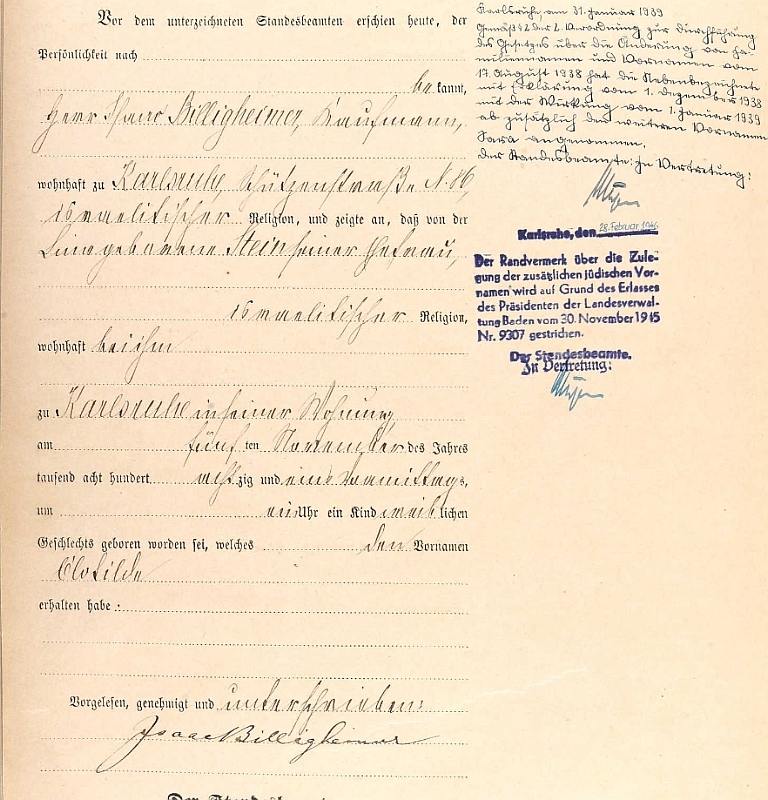 Vor dem unterzeichneten Standesbeamten erschien heute, der
Persönlichkeit nach
bekannt,
Herr Isaac Billigheimer, Kaufmann,
wohnhaft zu Karlsruhe, Schützenstraße N. 86,
israelitischer Religion, und zeigte an, daß von der
Lina geborene Stein seiner Ehefrau,
israelitischer Religion,
wohnhaft bei ihm
zu Karlsruhe in seiner Wohnung
am fünften November des Jahres
tausend acht hundert achtzig und eins Vormittags,
um ein Uhr ein Kind weiblichen
Geschlechts geboren worden sei, welches den Vornamen
Clotilde
erhalten habe.
Vorgelesen, genehmigt und unterschrieben:
Isaac Billigheimer
Karlsruhe, am 31. Januar 1939
Gemäß § 2 der 2. Verordnung zur Durchführung
des Gesetzes über die Änderung von Fa-
miliennamen und Vornamen vom
17. August 1938 hat die Nebenbezeichnete
mit Erklärung vom 1. Dezember 1938
mit der Wirkung vom 1. Januar 1939
ab zusätzlich den weitern Vornamen
Sara angenommen.
Der Standesbeamte: In Vertretung:
Karlsruhe, den 28. Februar 1946
Der Randvermerk über die Zule-
gung der zusätzlichen jüdischen Vor-
namen wird auf Grund des Erlasses
des Präsidenten der Landesverwal-
tung Baden vom 30. November 1945
Nr. 9307 gestrichen.
Der Standesbeamte.
In Vertretung: